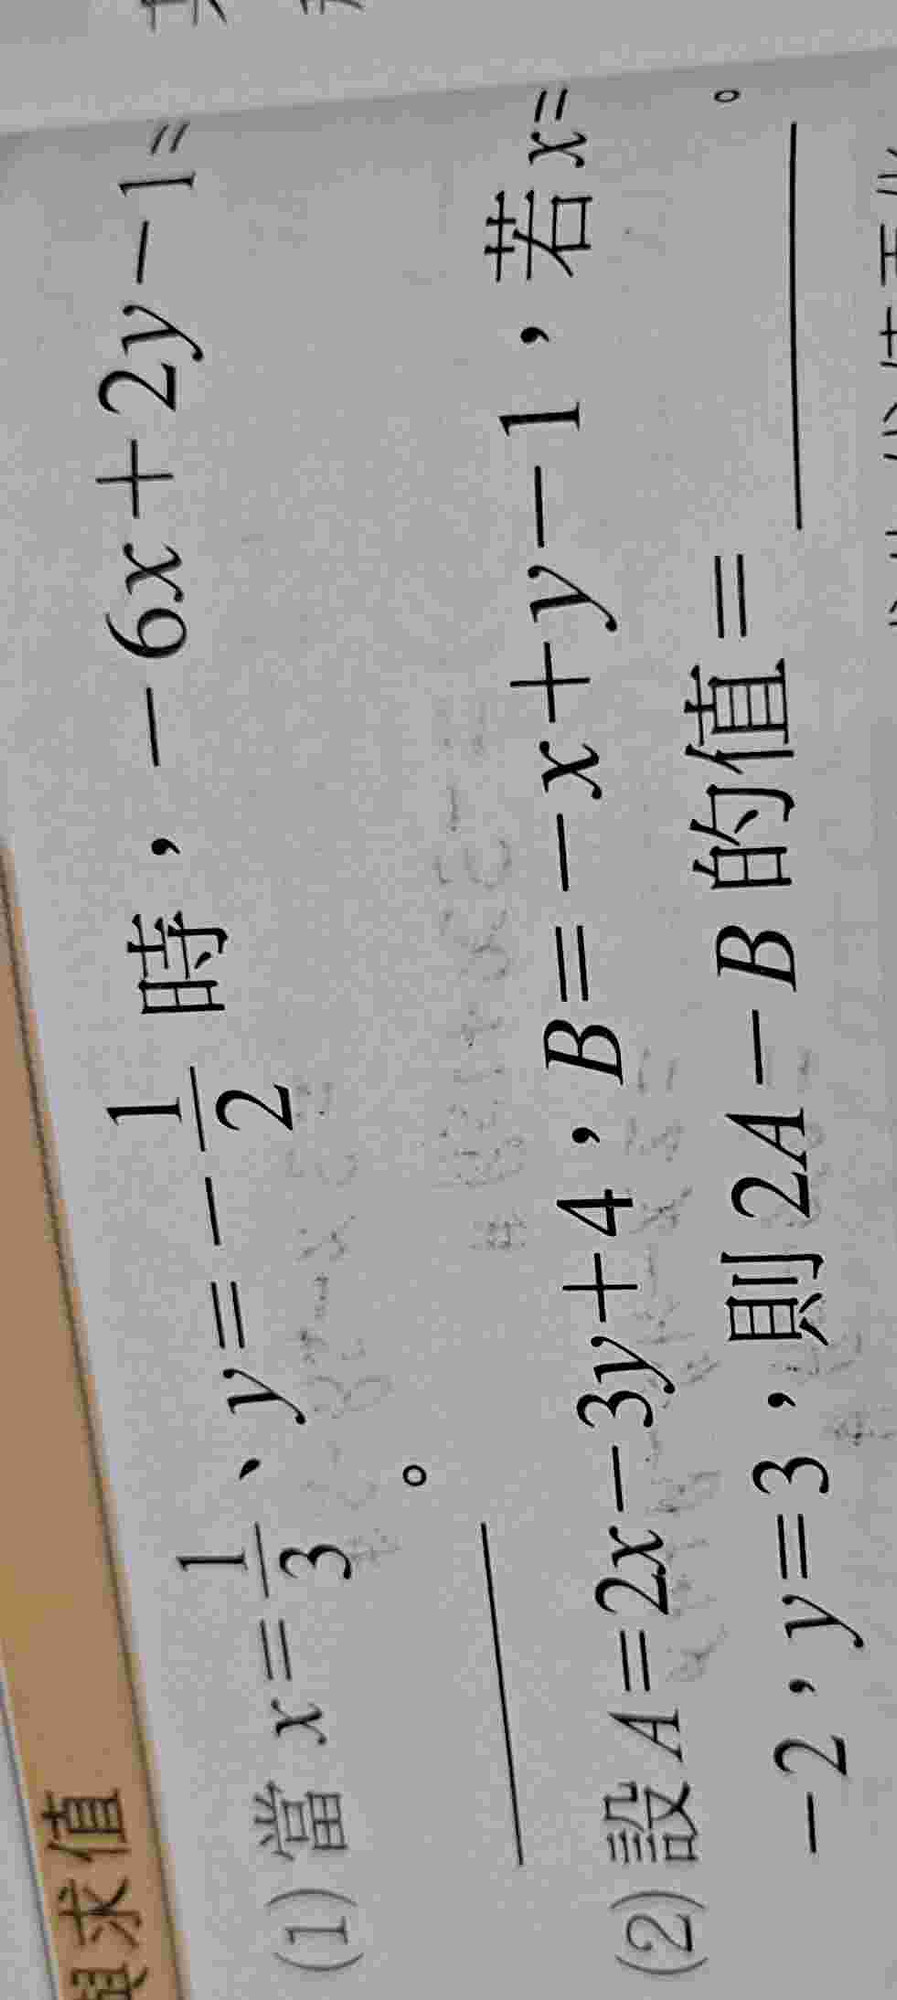 求值
(1) 當 x=1/3、y=-1/2 時，-6x+2y-1=
。
(2) 設 A=2x-3y+4，B=-x+y-1，若 x=
-2，y=3，則 2A-B 的值=________。